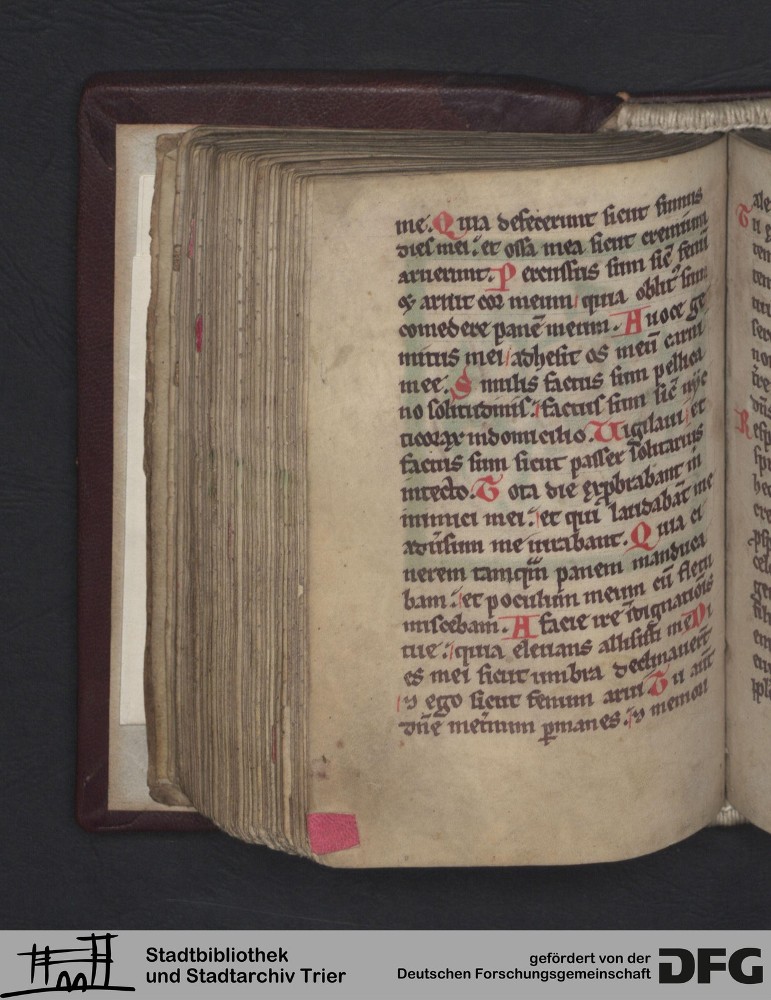 me. Quia defecerunt sicut fumus
dies mei. et ossa mea sicut cremium
aruerunt. Percussus sum sic̄ fenū
& aruit cor meum quia oblit᷒ sum
comedere panē meum. A uoce ge
mitus mei adhesit os meū carni
mee. Similis factus sum pellica
no solitudinis. factus sum sic̄
in domicilio. Uigilaui et
factus sum sicut passer solitarius
in tecto. Tota die exprobrabant m
inimici mei. et qui laudabāt me
adūsum me iurabant. Quia ci
nerem tamquā panem manduca
bam. et poculum meum cū fletu
miscebam. A facie ire īdignatiōis
tue. quia eleuans allisisti me Di
es mei sicut umbra declinauerūt
ego sicut fenum arui Tu aut̄
dn̄e ineternum ꝑmanes. memori
Stadtbibliothek
und Stadtarchiv Trier
gefördert von der
Deutschen Forschungsgemeinschaft
DFG